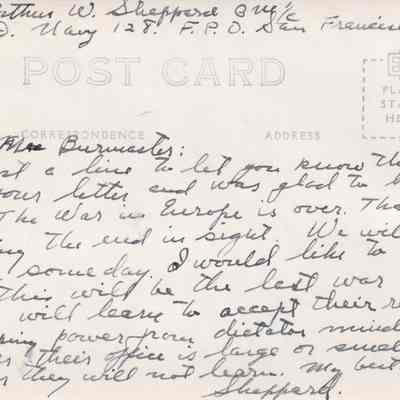 Arthur W. Sheppard
Navy 128. F.P.O. San Francisco
POST CARD
PLA
STA
HE
CORRESPONDENCE ADDRESS
Burmaster:
a line to let you know
your letter and was glad to
The War in Europe is over.
the end in sight. We will
some day. I would like to
this will be the last war
will learn to accept their
power from dictator
their office is large or small
they will not learn. My best
Sheppard.